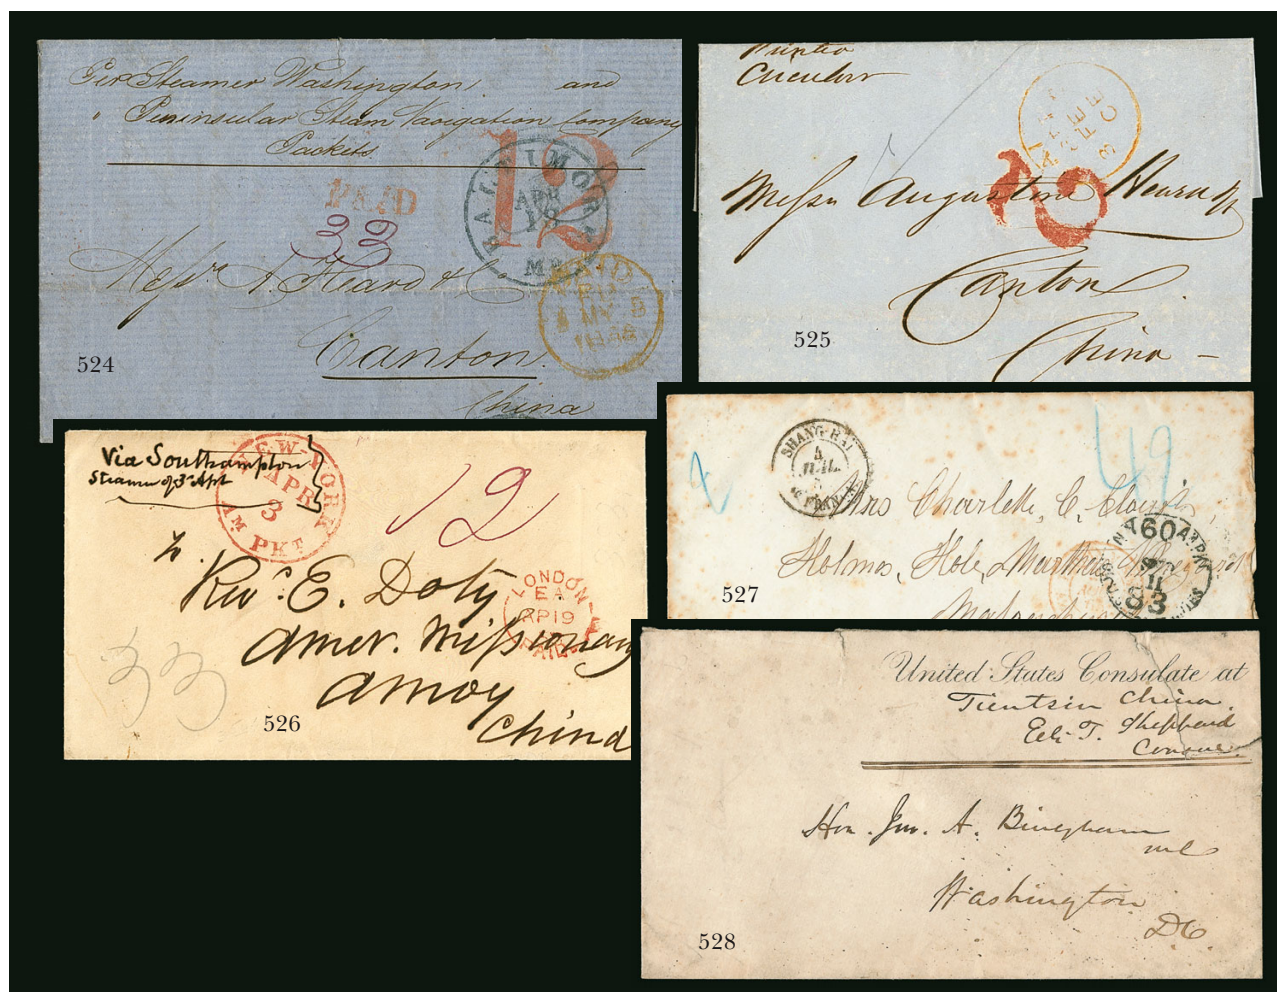 Per Steamer Washington and
" Peninsular Steam Navigation Company
Packets
PAID
12
BALTIMORE
APR
Md
33
PAID
1856
Messrs A. Heard & Co
Canton
China
524
Printed
Circular
2
Messrs Augustine Heard
Canton
China
525
Via Southampton
Steamer of 3d Apl
NEW-YORK
APR
3
AM PKT
12
To
Revd. E. Doty
Amer. Missionary
Amoy
China
LONDON
EA
AP 19
PAID
33
526
SHANG-HAI
4
JUIL.
49
Mrs Charlotte C.
Holmes Hole, Martha's
60
83
527
United States Consulate at
Tientsin China.
Eli T. Sheppard
Consul
Hon. Jno. A. Bingham
MC
Washington
DC
528